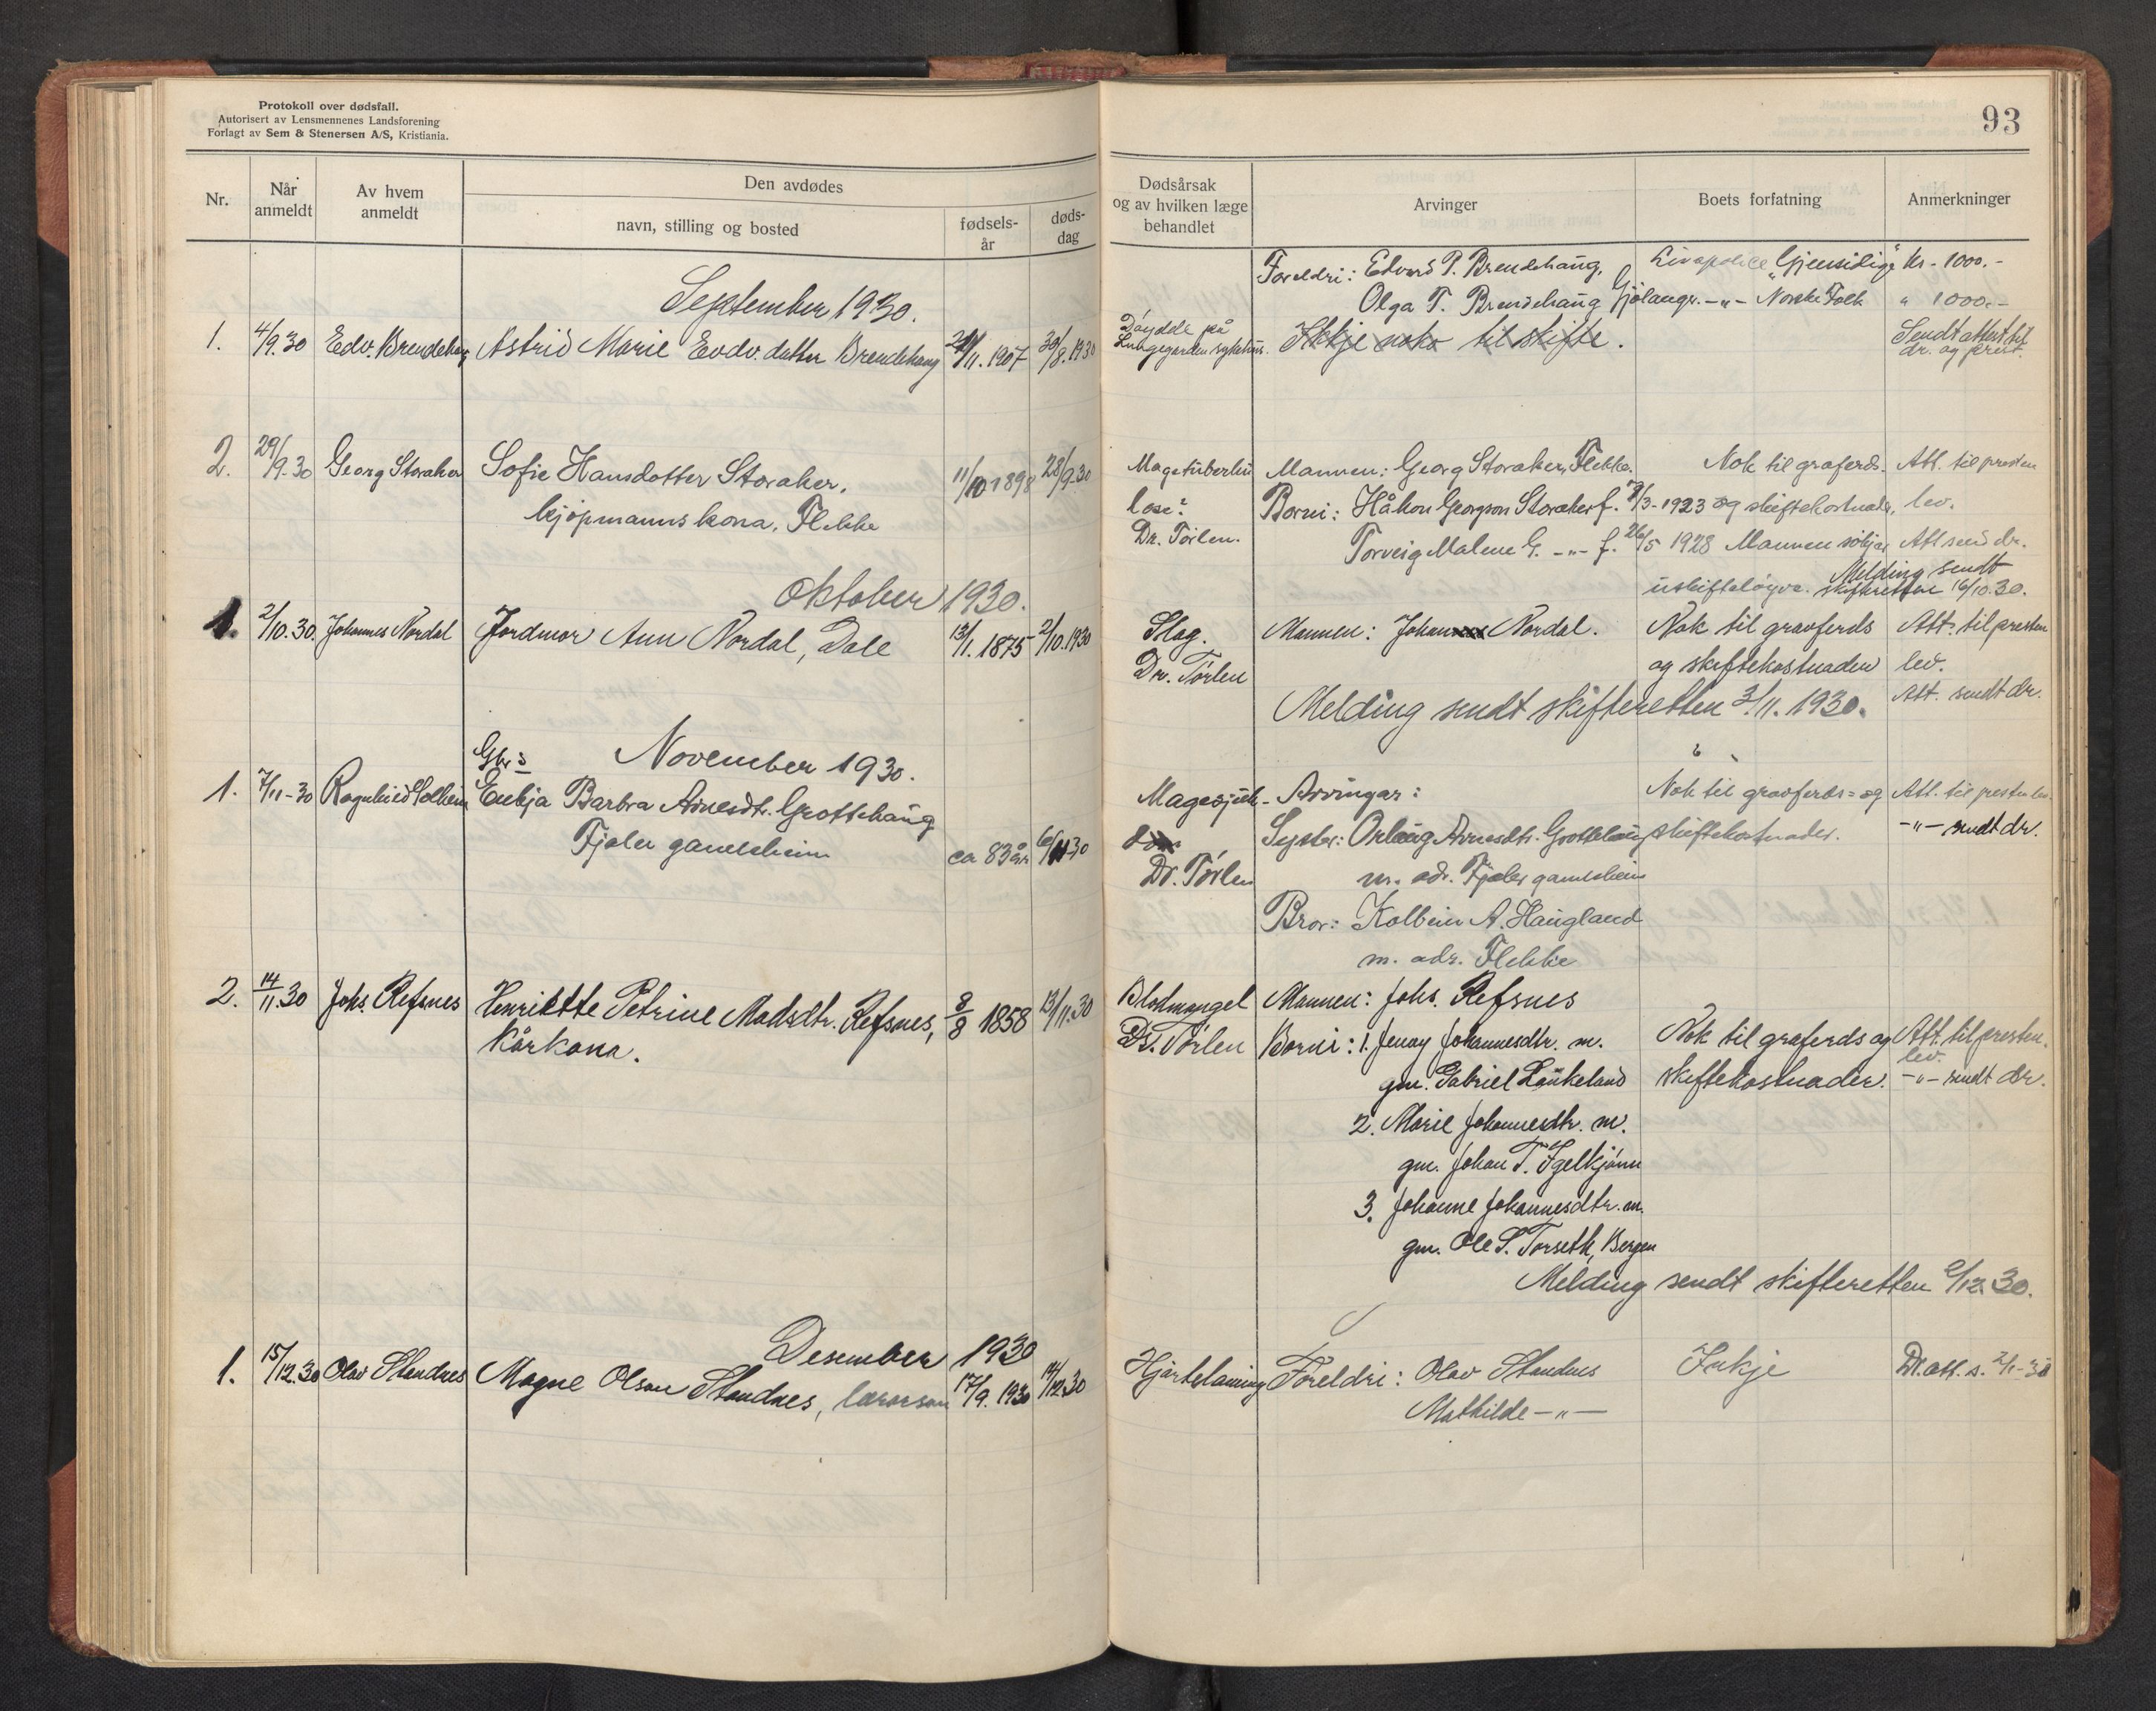 Protokoll over dødsfall.
Autorisert av Lensmennenes Landsforening
Forlagt av Sem & Stenersen A/S, Kristiania.
93
Nr.
Når anmeldt
Av hvem anmeldt
Den avdødes
navn, stilling og bosted
fødsels-år
døds-dag
Dødsårsak og av hvilken læge behandlet
Arvinger
Boets forfatning
Anmerkninger
Foreldri: Edvard P. Brendehaug, Livspolice "Gjensidige" kr - 1000.-
Olga T. Brendehaug Gjølangr. -"- Norske Folk " 1000.-
September 1930.
1. 4/9.30 Edv. Brendehaug Astrid Marie Edv. datter Brendehaug /11.1907 30/8.1930 Døydde på Ikkje noko til skifte. Sendt attest til
Lungegården sykehus. dr. og prest.
2. 29/9.30 Georg Storaker Sofie Hansdotter Storaker, 11/10 1898 28/9.30 Magetuberku Mannen: Georg Storaker, Flekke. Nok til graferds- Att. til presten
kjøpmannskona, Flekke lose? Borni: Håkon Georgson Storaker f. /3-1923 og skiftekostnader, lev.
Dr. Tørlen. Torveig Malene G. -"- f. 26/5 1928 Mannen søkjer Att send dr.
uskifteløyve. Melding sendt
skifteretten 16/10.30.
Oktober 1930.
1. 2/10.30. Johannes Nordal Jordmor Ann Nordal, Dale 13/1.1875 2/10.1930 Slag. Mannen: Johan Nordal. Nok til gravferds Att. til presten
Dr. Tørlen og skiftekostnader lev.
Melding sendt skifteretten 3/11.1930. Att. sendt dr.
November 1930.
1. 7/11-30 Ragnhild Solheim Enkja Barbra Arnesdt. Grottehaug Magesjuk- Arvingar: Nok til gravferds- og Att. til presten lev.
Fjaler gamleheim ca 83 år 6/11 30 Syster: Arnesdtr. Grottehaug skiftekostnader. -"- sendt dr.
Dr. Tørlen m. adr. Fjaler gamleheim
Bror: Kolbein A. Haugland
m. adr. Flekke
2. 14/11.30 Johs. Refsnes Henriette Petrine Madsdtr. Refsnes, 8/8 1858 13/11.30 Blodmangel Mannen: Johs. Refsnes
kårkona. Dr. Tørlen Borni: 1. Jenny Johannesdtr. m. Nok til graferds og Att. til presten.
gm. Gabriel Laukeland skiftekostnader. lev.
-"- sendt dr.
2. Marie Johannesdtr. m.
gm. Johan T. Igelkjønn
3. Johanne Johannesdtr. m.
gm. Ole S. Torseth, Bergen
Melding sendt skifteretten /12.30.
Desember 1930
1. 15/12.30 Olav Standnes Magne Olson Standnes, lærarson 17/9.1930 14/12.30 Hjartelaming Foreldri: Olav Standnes Inkje Dr. att. s. 2/1-31
Mathilde -"-